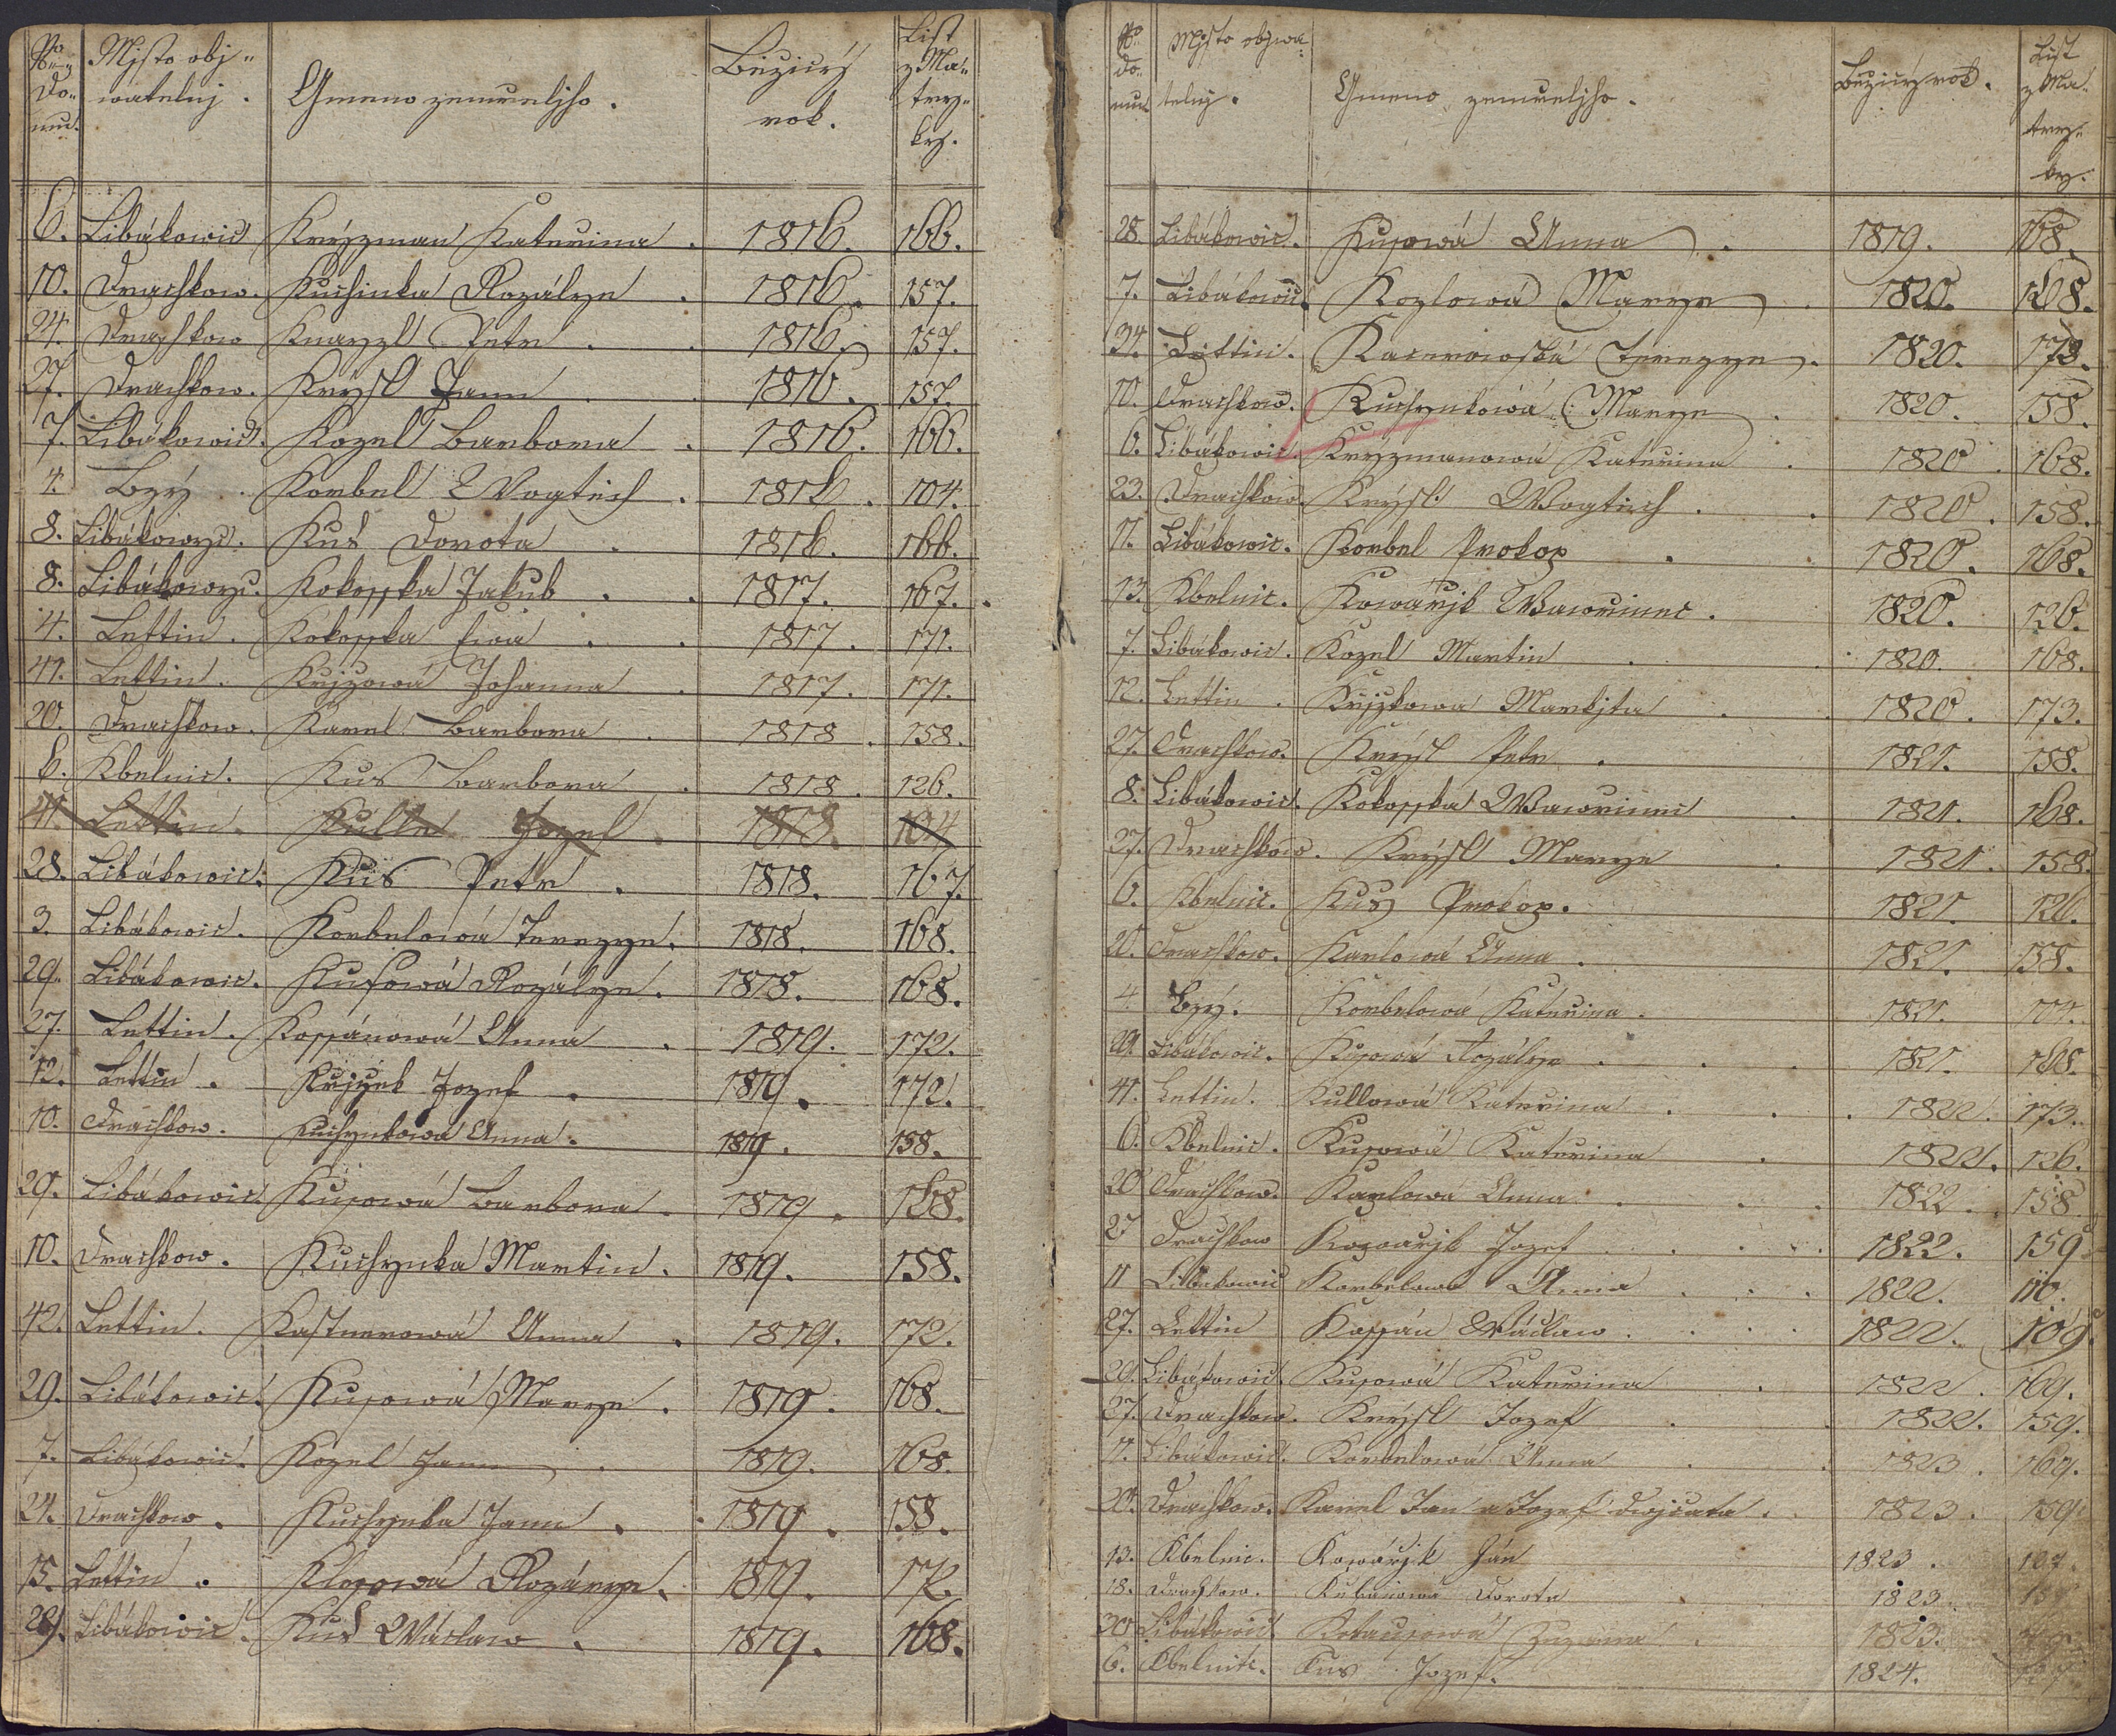 No Do- mu. Mjsto obj- watelnj. Gmeno zemrelýho. Běžicý rok. List z Ma- try- ky.
6. Libákowic Krýzman Kateřina. 1816. 166.
10. Drachkow. Kuchinka Rozálye. 1816. 157.
24. Drachkow Petr. 1816. 157.
27. Drachkow. Krysl Jann 1816. 157.
7. Libákowic. Kozel Barbora. 1816. 166.
4. Bzý. Korbel Wogtěch. 1816. 104.
8. Libákowyc. Kus Dorota. 1816. 166.
8. Libákowyc. Kokosska Jakub. 1817. 167.
4. Lettin. Kokosska Ewa. 1817. 171.
41. Lettin. Johanna. 1817. 171.
20. Drachkow. Karel Barbora. 1818. 158.
6. Kbelnic. Kus Barbora. 1818. 126.
41. Lettin. Kulle Jozef. 1818. 104
28. Libákowic. Kus Petr. 1818. 167.
3. Libákowic. Korbelowá Terezye. 1818. 168.
29. Libákowic. Kusowá Rozálye. 1818. 168.
27. Lettin. Kossánowá Anna. 1819. 172.
12. Lettin. Křjžek Jozef. 1819. 172.
10. Drachkow. Kuchynkowá Anna. 1819. 158.
29. Libákowic Kusowá Barbora. 1819. 168.
10. Drachkow. Kuchynka Martin. 1819. 158.
42. Lettin. Kastnerowá Anna. 1819. 172.
29. Libákowic. Kusowá Marye. 1819. 168.
7. Libákowic. Kozel Jann. 1819. 168.
24. Drachkow. Kuchynka Jann. 1819. 158.
15. Lettin. Klosowá 1819. 172.
29. Libákowic. Kus Wáclaw. 1819. 168.
No Do- mu Mjsto obywa- telnj. Gmeno zemrelýho. Běžicý rok. List z Ma- try- ky.
28. Libákowic. Kusowá Anna. 1819. 168.
7. Libákowic. Kozlowá Marye. 1820. 168.
34. Lettin. Terezye. 1820. 173.
10. Drachkow. Kuchynkowá Marye. 1820. 158.
6. Libákowic. Kryzmanowá Kateřina. 1820. 168.
23. Drachkow. Krýsl Wogtěch. 1820. 158.
11. Libákowic. Korbel Prokop. 1820. 168.
13. Kbelnic. Kowářjk Wawřinec. 1820. 126.
7. Libákowic. Kozel Martin. 1820. 168.
12. Lettin. Křjžkowá Markjta. 1820. 173.
27. Drachkow. Krýsl Petr. 1821. 158.
8. Libákowic. Kokosska Wawřinec. 1821. 168.
27. Drachkow. Krýsl Marye. 1821. 158.
6. Kbelnic. Kus Prokop. 1821. 126.
20. Drachkow. Karlowá Anna. 1821. 158.
4 Bzý. Korbelowá Kateřina. 1821. 104.
29. Libákowic. Kusowá Rozálye. 1821. 168.
41. Lettin. Kullowá Kateřina. 1822. 173.
6. Kbelnic. Kusowá Kateřina. 1822. 126.
20 Drachkow. Karlowá Anna. 1822. 158
27 Drachkow Kowářjk Jozef. 1822. 159
11 Libákowic Korbelowá Anna. 1822.
27. Lettin Kossán Wácław. 1822. 169.
29. Libákowic. Kusowá Kateřina. 1822. 169.
27. Drachkow. Krýsl Jozef. 1822. 159.
11. Libákowic. Korbelowá Anna. 1823. 169.
20. Drachkow. Karel Jan a Jozef dwojčata. 1823. 159.
13. Kbelnic. Kowářjk Ján 1823. 127.
18. Drachkow. Dorota 1823.
20 Libákowic Zuzanna. 1823.
6. Kbelnic. Kus Jozef. 1824.